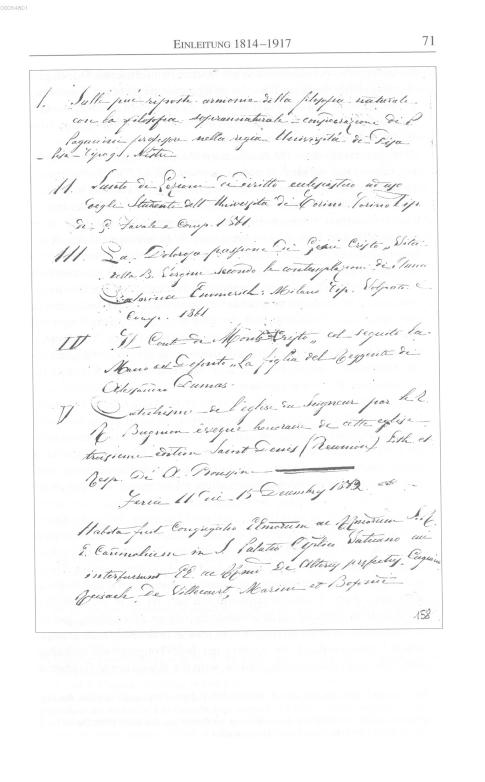 EINLEITUNG 1814–1917 71
I. Sulle più riposte armonie della filosofia naturale
con la filosofia soprannaturale – considerazione di P
Paganini professore nella regia Università di Pisa
– Pisa – Tipogr. Nistri
II. Sunto di Lezioni di Diritto ecclesiastico ad uso
degli Studenti dell' Università di Torino. Torino Tip.
di G. Favale e Comp. 1861.
III. La Dolorosa passione di Gesù Cristo
della B. Vergine secondo le contemplazioni di Anna
Catarina Emmerich: Milano Tip. Volpato e
Comp. 1861
IV Il Conte di Monte-Cristo, col seguito la
Mano del Defunto, La figlia del Reggente di
Alessandro Dumas.
V Catechisme de l'église du Seigneur par le
Bugnon évêque honoraire de cette église
troisieme édition Saint Denis (Reunion) Lith. et
Tesp. de A. Roussin
Feria II die 15 Decembris
Habita fuit Congregatio Emorum ac Rmorum S.R.
E. Cardinalium in S. Palatio Aplico Vaticano cui
interfuerunt EE. ac Rmi De Altieri praefectus, Cagiano
De Villecourt, Marini et Bofondi
158